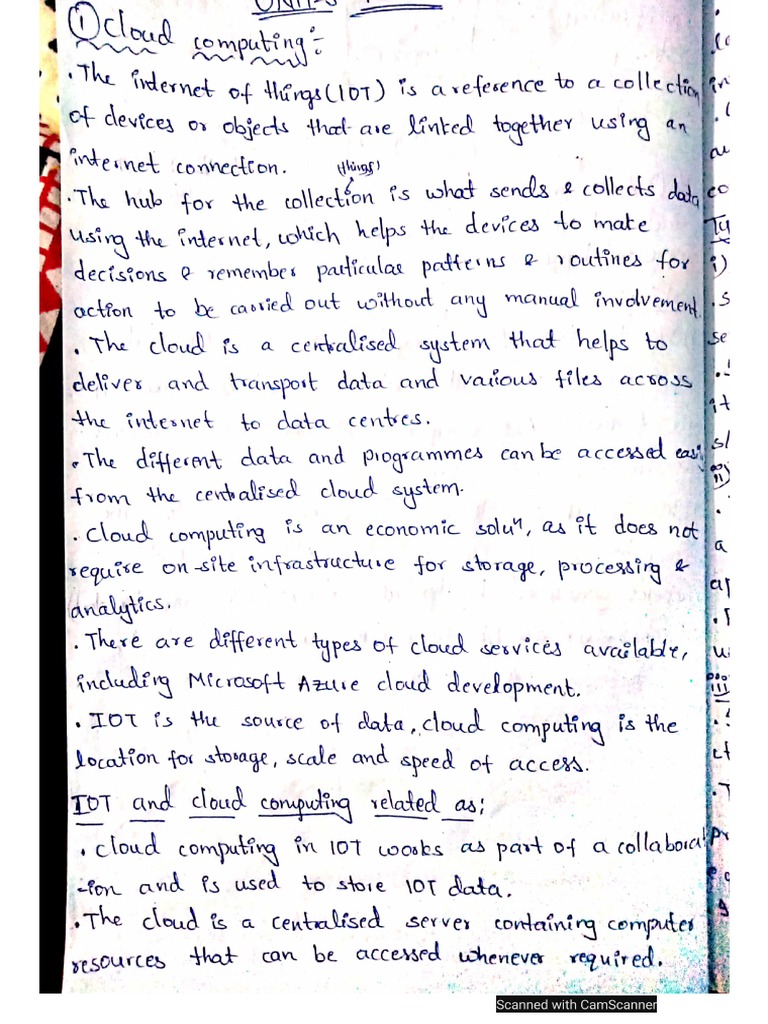 ① Cloud computing:-
. The internet of things (IOT) is a reference to a collection
of devices or objects that are linked together using an
internet connection.
(things)
. The hub for the collection is what sends & collects data
using the internet, which helps the devices to make
decisions & remember particular patterns & routines for
action to be carried out without any manual involvement.
. The cloud is a centralised system that helps to
deliver and transport data and various files across
the internet to data centres.
. The different data and programmes can be accessed
from the centralised cloud system.
. Cloud computing is an economic soluⁿ, as it does not
require on-site infrastructure for storage, processing &
analytics.
. There are different types of cloud services available,
including Microsoft Azure cloud development.
. IOT is the source of data, cloud computing is the
location for storage, scale and speed of access.
IOT and cloud computing related as:
. cloud computing in IOT works as part of a collaborat
-ion and is used to store IOT data.
. The cloud is a centralised server containing computer
resources that can be accessed whenever required.
Scanned with CamScanner